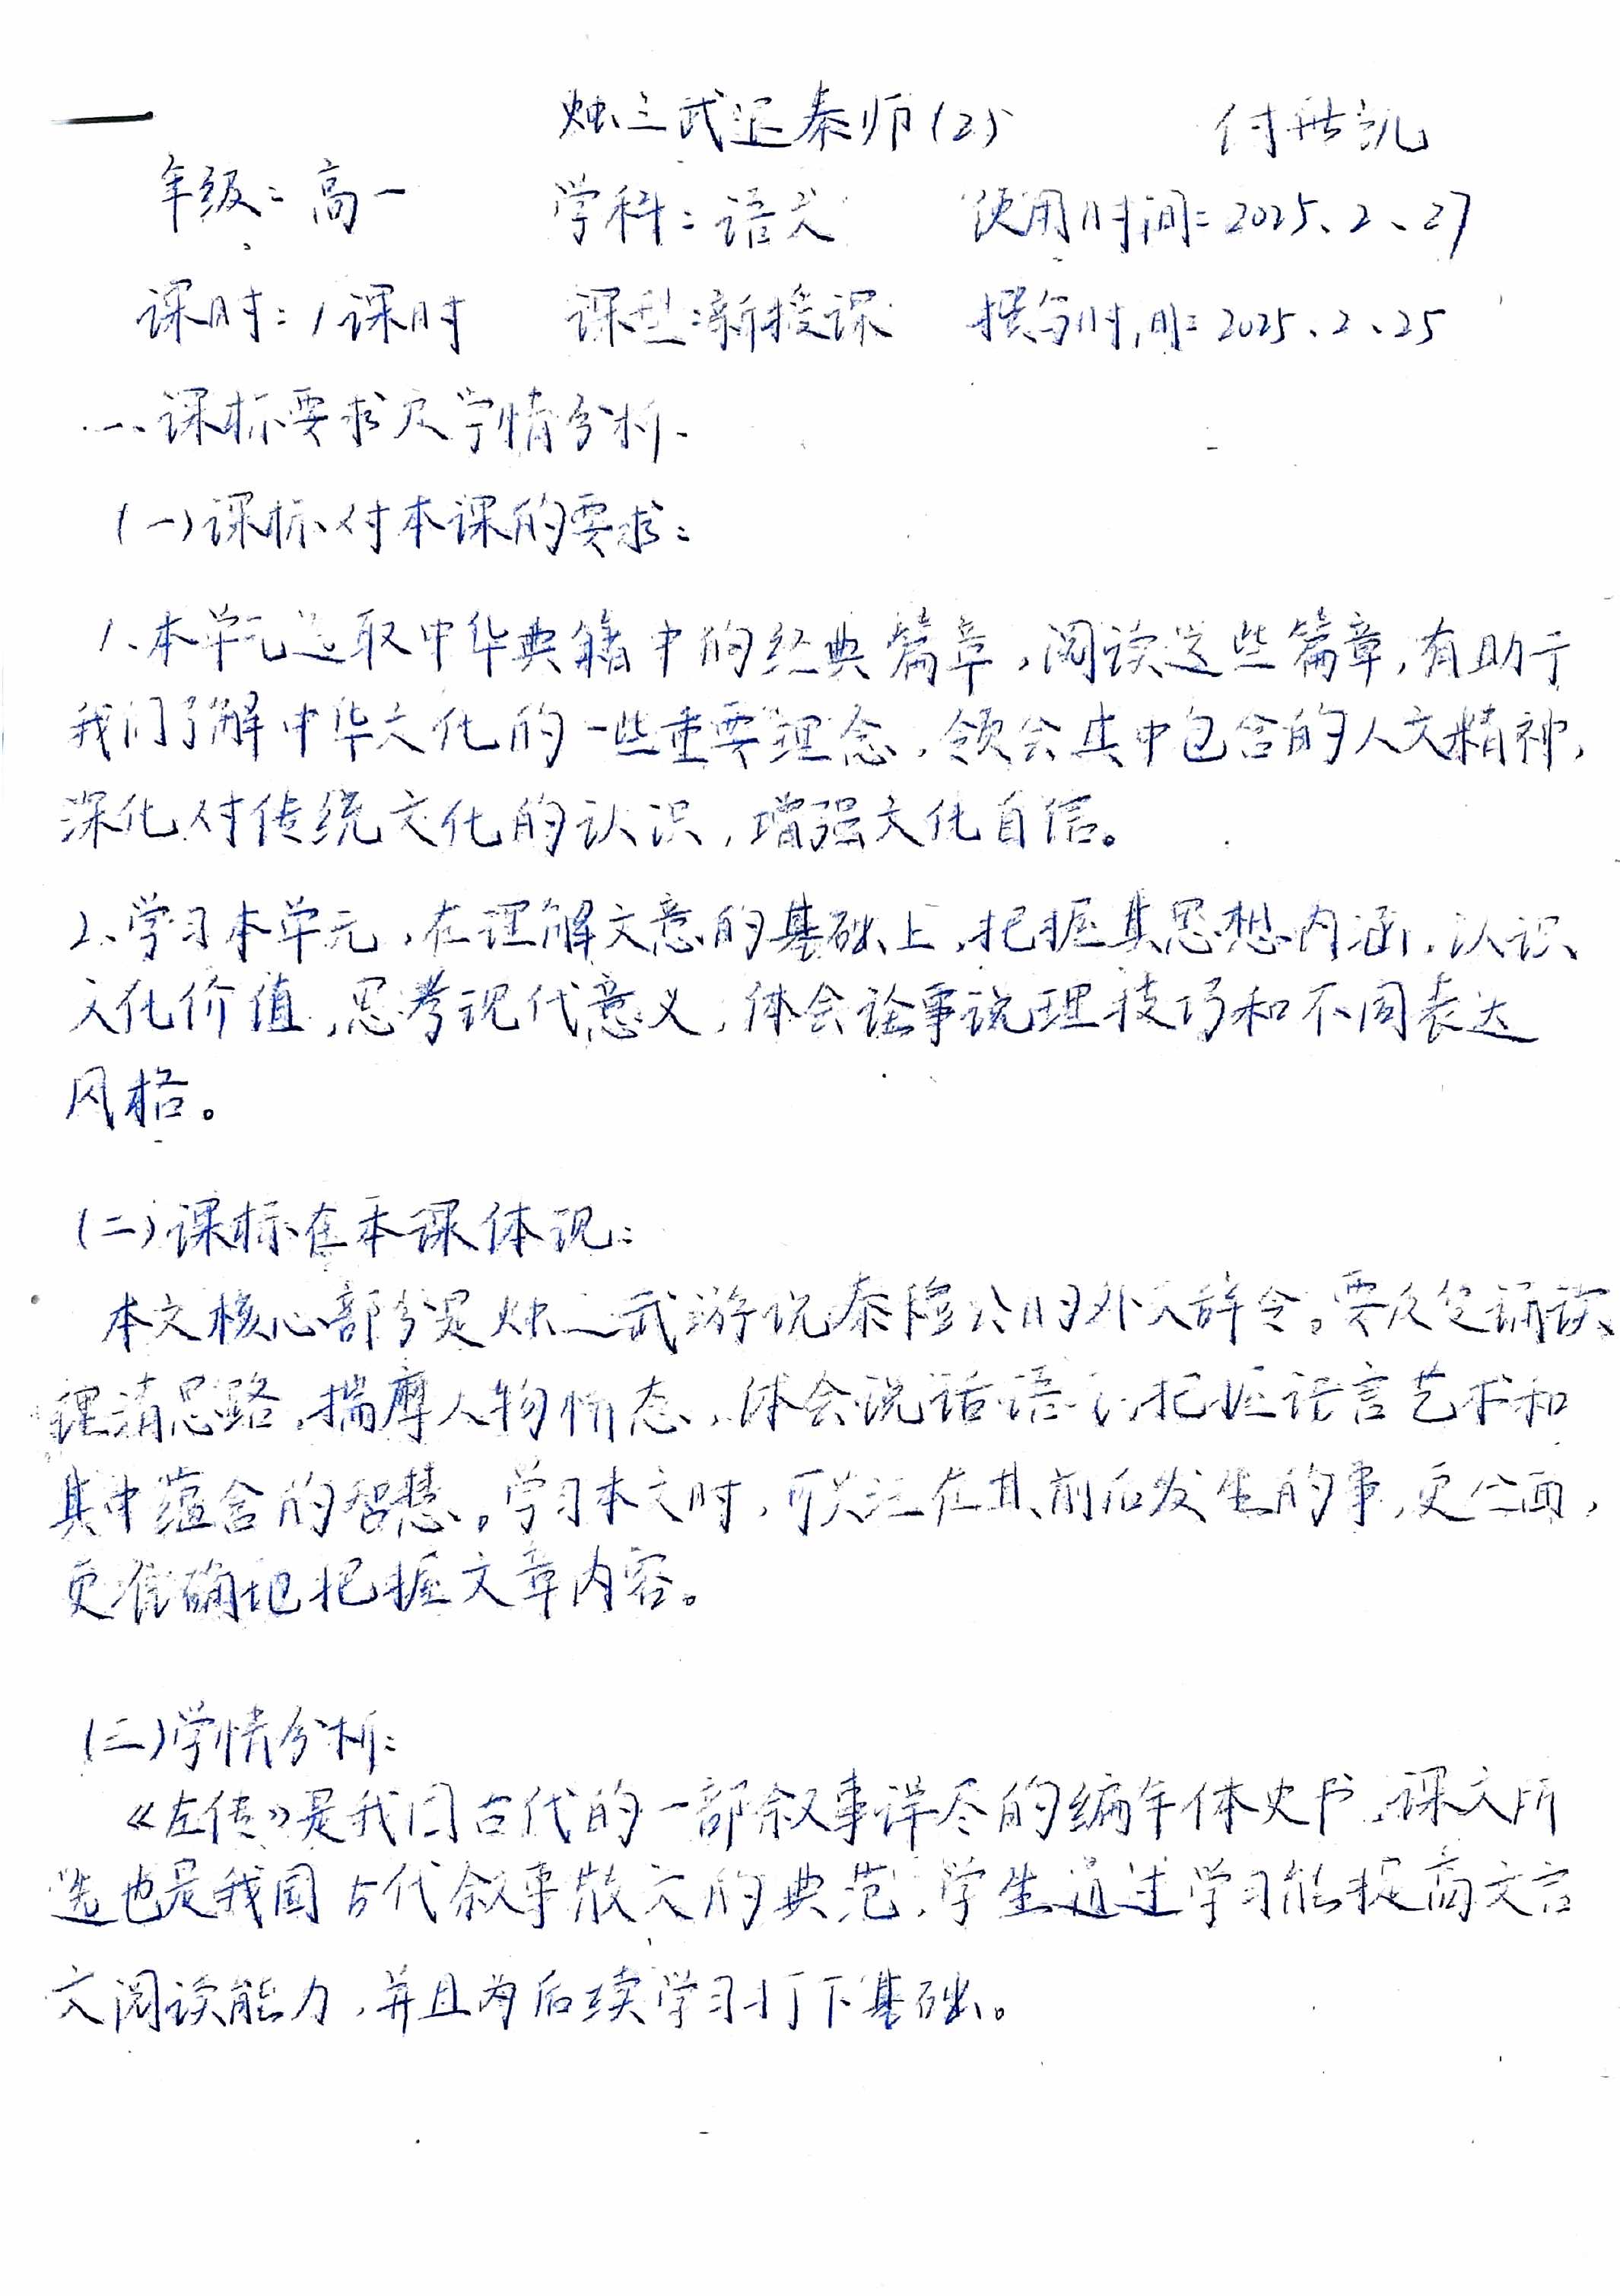 烛之武退秦师(2) 付 凯
年级:高一 学科:语文 使用时间:2025、2、27
课时:1课时 课型:新授课 撰写时间:2025、2、25
一、课标要求及学情分析、
(一)课标对本课的要求:
1、本单元选取中华典籍中的经典篇章,阅读这些篇章,有助于
我们了解中华文化的一些重要理念,领会其中包含的人文精神,
深化对传统文化的认识,增强文化自信。
2、学习本单元,在理解文意的基础上,把握其思想内涵,认识
文化价值,思考现代意义,体会论事说理技巧和不同表达
风格。
(二)课标在本课体现:
本文核心部分是烛之武游说秦穆公的外交辞令。要反复诵读、
理清思路,揣摩人物情态,体会说话语气,把握语言艺术和
其中蕴含的智慧。学习本文时,可关注在其前后发生的事,更全面,
更准确地把握文章内容。
(三)学情分析:
《左传》是我国古代的一部叙事详尽的编年体史书,课文所
选也是我国古代叙事散文的典范,学生通过学习能提高文言
文阅读能力,并且为后续学习打下基础。